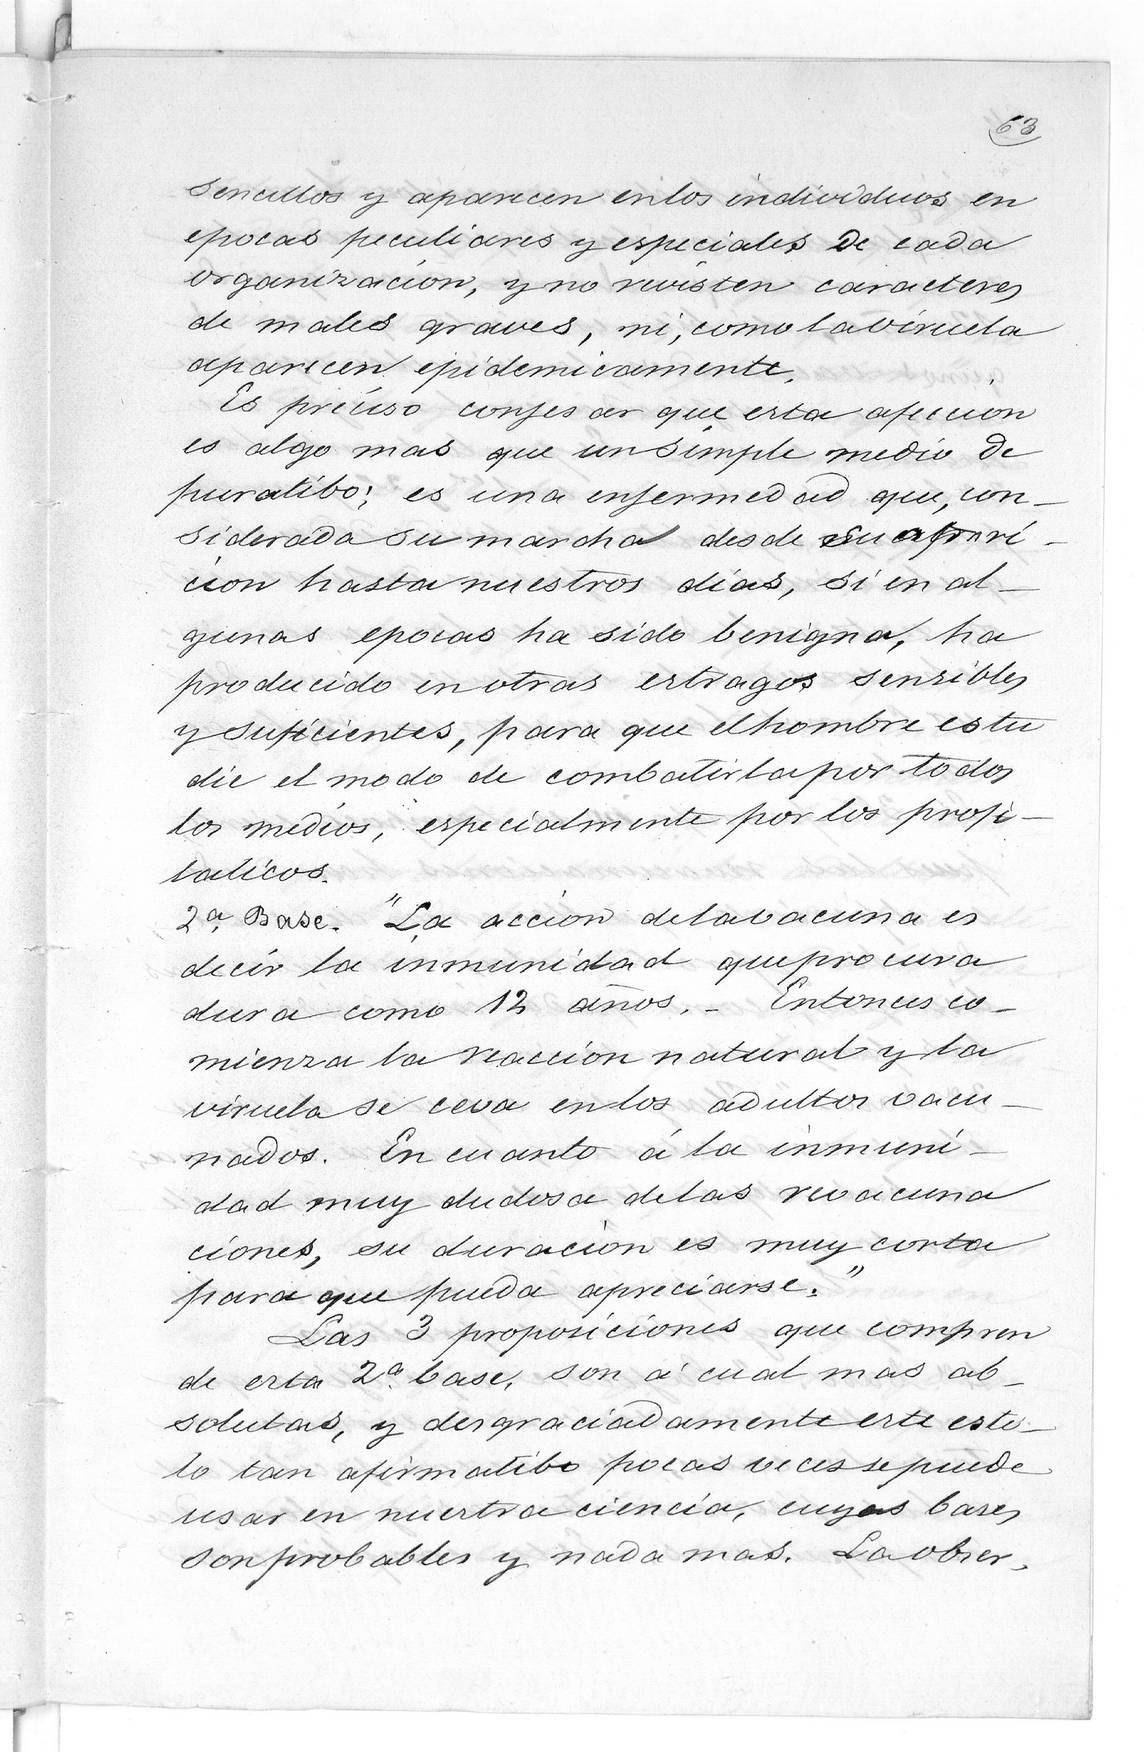 63
sencillos y aparecen en los individuos en
epocas peculiares y especiales de cada
organización, y no revisten caracteres
de males graves, ni, como la viruela
aparecen epidemicamente.
Es preciso confesar que esta afeccion
es algo mas que un simple medio de
puratibo; es una enfermedad que, con_
siderada su marcha desde su apari_
cion hasta nuestros dias, si en al_
gunas epocas ha sido benigna, ha
producido en otras estragos sensibles
y suficientes, para que el hombre estu
die el modo de combatirla por todos
los medios, especialmente por los profi_
laticos.
2ª Base. "La acción de la vacuna es
decir la inmunidad que procura
dura como 12 años._ Entonces co_
mienza la reaccion natural y la
viruela se ceva en los adultos vacu_
nados. En cuanto á la inmuni_
dad muy dudosa de las revacuna
ciones, su duracion es muy corta
para que pueda apreciarse."
Las 3 proposiciones que compren
de esta 2ª base, son á cual mas ab_
solutas, y desgraciadamente este esti_
lo tan afirmatibo pocas veces se puede
usar en nuestra ciencia, cuyas bases
son probables y nada mas. La obser_